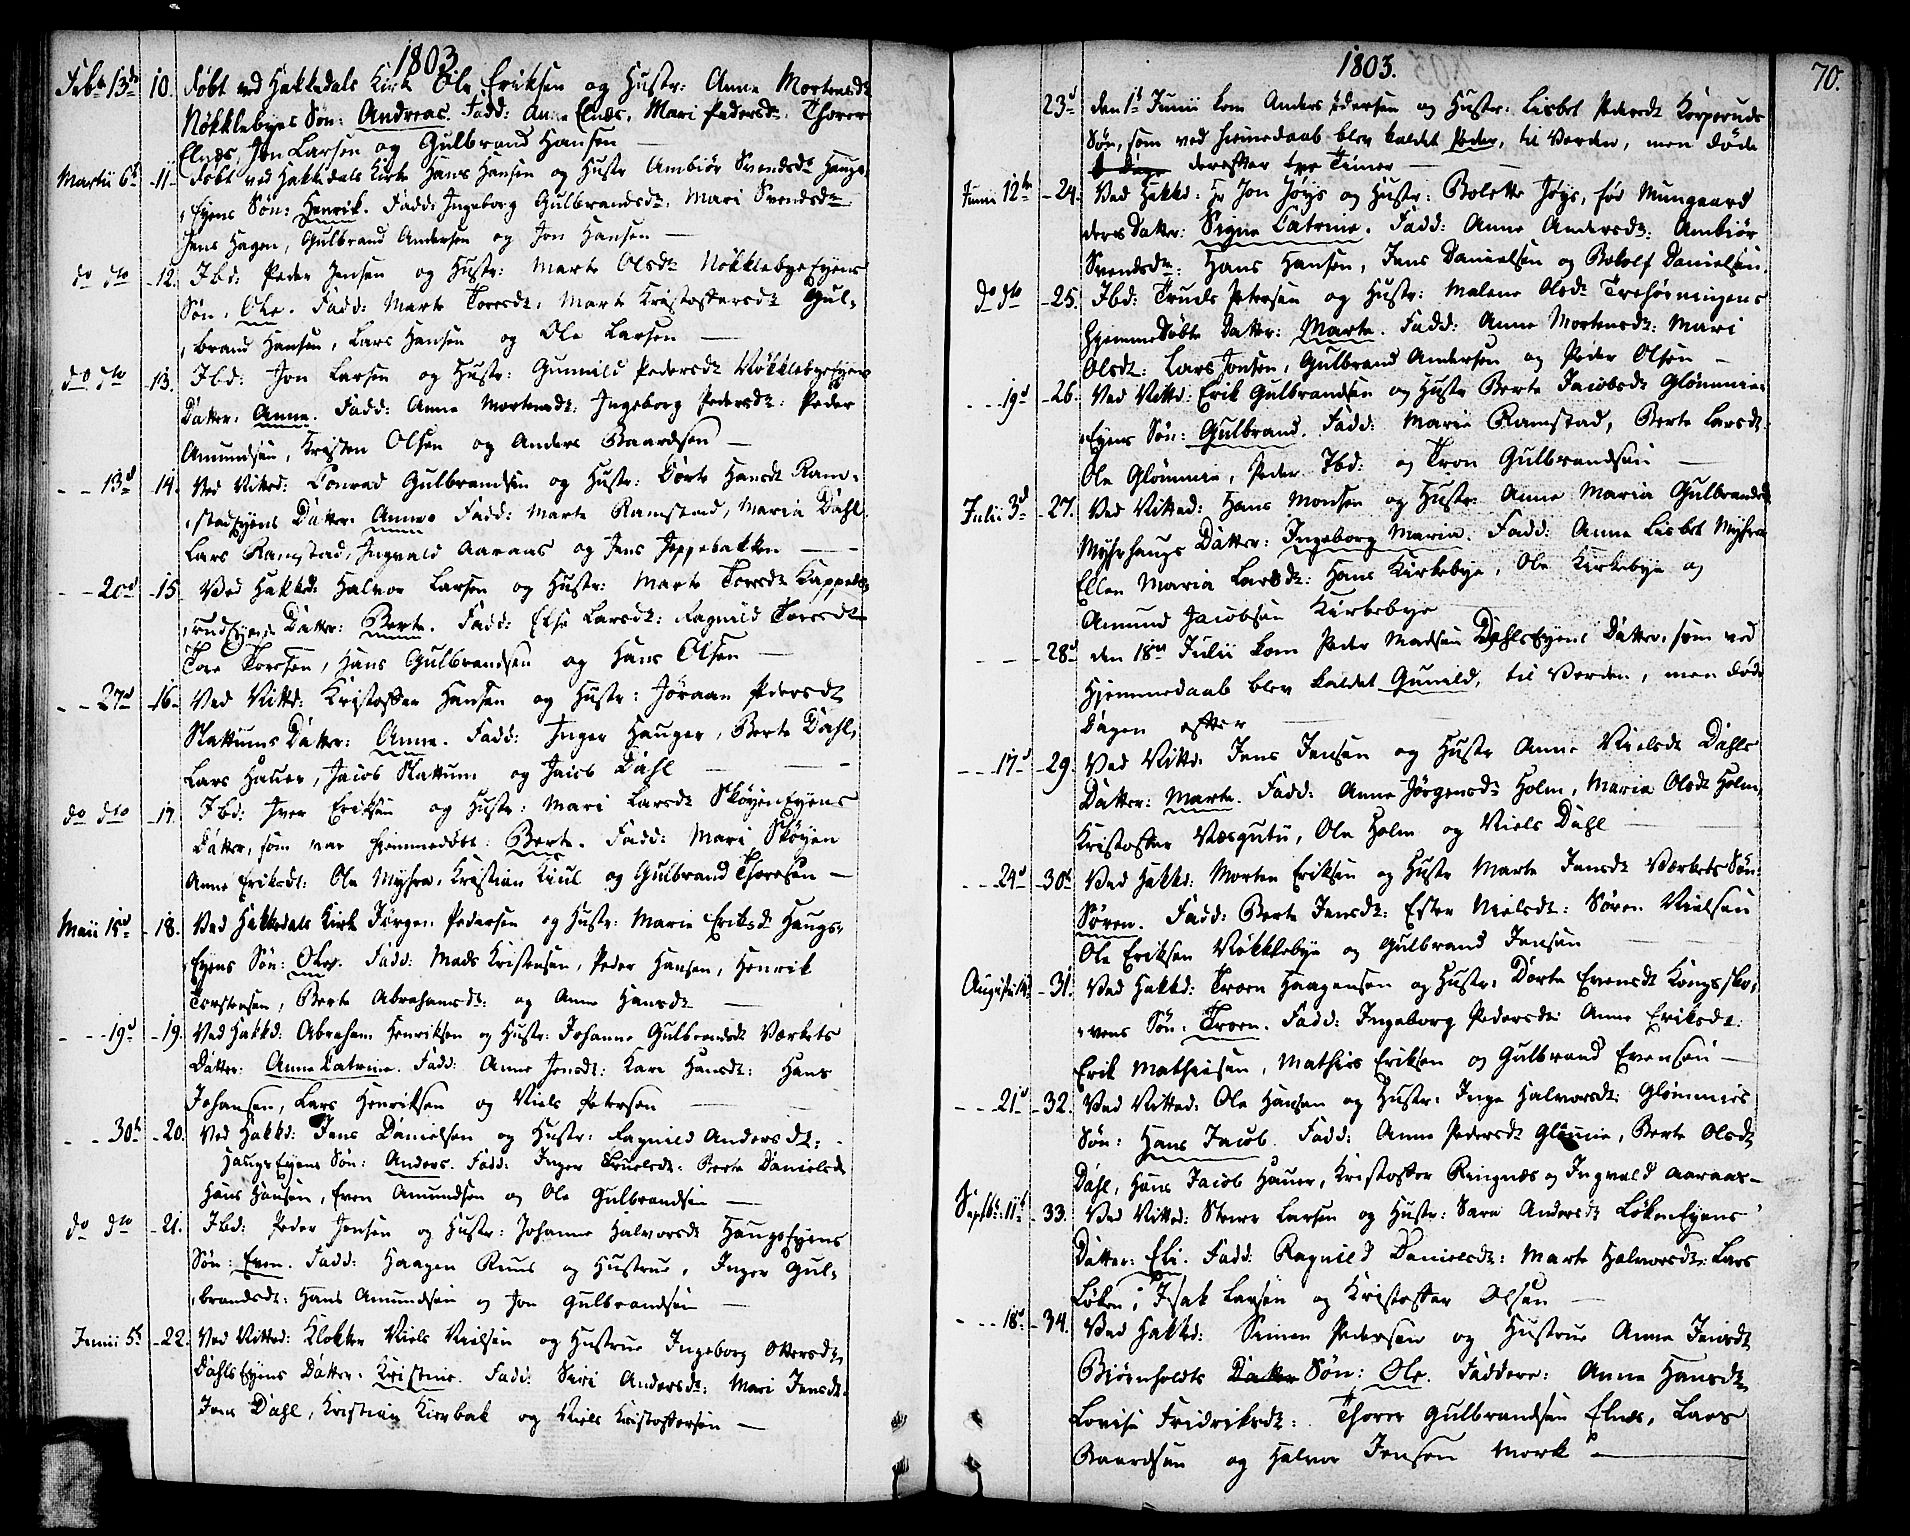 1803
Febr 13de 10. døbt ved Hakkedals Kirk Ole Eriksen og Hustr: Anne Mortensdr
Nøkklebyes Søn: Andreas. Fadd: Anne Elnæs, Mari Pedersdr: Thorer
Elnæs, Jon Larsen og Gulbrand Hansen —
Martii 6t 11. døbt ved Hakkedals Kirke Hans Hansen og Hustr Ambiør Svendsdr Haugs-
Eyens Søn: Henrik. Fadd: Ingeborg Gulbrandsdr: Mari Svendsdr
Jens Hagen, Gulbrand Andersen og Jon Hansen —
do dto 12. Ibd: Peder Jensen og Hustr: Marte Olsdr NøkklebyeEyens
Søn: Ole. Fadd: Marte Toresdr: Marte Kristoffersdr Gul-
brand Hansen, Lars Hansen og Ole Larsen —
do dto 13. Ibd: Jon Larsen og Hustr: Gunnild Pedersdr NøkklebyeEyens
Datter: Anne. Fadd: Anne Mortensdr: Ingeborg Pedersdr: Peder
Amundsen, Kristen Olsen og Anders Baardsen —
— 13d 14. Ved Nitted: Conrad Gulbrandsen og Hustr: Dorte Hansdr Ram-
stadEyens Datter: Anne. Fadd: Marte Ramstad, Maria Dahl
Lars Ramstad, Ingvald Aaraas og Jens Jeppebakken —
— 20d 15. Ved Hakked: Halvor Larsen og Hustr: Marte Toresdr Kappels-
rudEyens Datter: Berte. Fadd: Else Larsdr: Ragnild Toresdr
Tore Toresen, Hans Gulbrandsen og Hans Olsen —
— 27d 16. Ved Nittd: Kristoffer Hansen og Hustr: Jøraan Pedersdr
Slattums Datter: Anne. Fadd: Inger Hauger, Berte Dahl,
Lars Hauer, Jacob Slattum og Jacob Dahl —
do dto 17. Ibd: Iver Eriksen og Hustr: Mari Larsdr SkøyenEyens
Datter, som var hjemmedøbt: Berte. Fadd: Mari Skøyen
Anne Eriksdr: Ole Myhre, Kristian Kiuul og Gulbrand Thoresen —
Maii 15d 18. Ved Hakkedals Kirk Jørgen Pedersen og Hustr: Marie Eriksdr Haugs-
Eyens Søn: Ole. Fadd: Mads Kristensen, Peder Hansen, Henrik
Torstensen, Berte Abrahamsdr: og Anne Hansdr —
— 19d 19. Ved Hakkd: Abraham Henriksen og Hustr: Johanne Gulbrandsdr Værkets
Datter: Anne Catrine. Fadd: Anne Jensdr: Kari Hansdr: Hans
Johansen, Lars Henriksen og Niels Petersen —
— 30t 20. Ved Hakkd: Jens Danielsen og Hustr: Ragnild Andersdr:
HaugsEyens Søn: Anders. Fadd: Inger Truelsdr: Berte Danielsdr
Hans Hansen, Even Amundsen og Ole Gulbrandsen —
do dto 21. Ibd: Peder Jensen og Hustr: Johanne Halvorsdr HaugsEyens
Søn: Even. Fadd: Haagen Ruus og Hustrue, Inger Gul-
brandsdr: Hans Amundsen og Jon Gulbrandsen —
Junii 5t 22. Ved Nitted: Klokker Niels Nielsen og Hustrue Ingeborg Ottersdr
DahlsEyens Datter: Kristine. Fadd: Siri Andersdr: Mari Jensdr:
Jens Dahl, Kristian Kierbak og Niels Kristoffersen —
1803.
70.
23d den 1t Junii kom Anders Pedersen og Hustr: Lisbet Pedersdr Korperuds
Søn, som ved hiemedaab blev kaldet Peder, til Verden, men døde
derefter tre Timer —
Junii 12te 24. Ved Hakkd: Hr Jon Jøys og Hustr: Bolette Jøys, før Mungaard
deres Datter: Signe Catrine. Fadd: Anne Andersdr: Ambiør
Svendsdr: Hans Hansen, Jens Danielsen og Botolf Danielsen.
do dto 25. Ibd: Truels Petersen og Hustr: Malene Olsdr Trehørningens
Hjemmedøbte Datter: Marte. Fadd: Anne Mortensdr: Mari
Olsdr: Lars Jonsen, Gulbrand Andersen og Peder Olsen —
— 19d 26. Ved Nittd: Erik Gulbrandsen og Hustr Berte Jacobsdr Glømmie-
Eyens Søn: Gulbrand. Fadd: Marie Ramstad, Berte Larsdr:
Ole Glømmie, Peder Ibd: og Tron Gulbrandsen —
Julii 3d 27. Ved Nitted: Hans Monsen og Hustr: Anne Maria Gulbrandsdr
Myhrhaugs Datter: Ingeborg Maria. Fadd: Anne Lisbet Myhre
Ellen Maria Larsdr: Hans Kirkebye, Ole Kirkebye og
Amund Jacobsen Kirkebye —
— 28d den 18de Julii kom Peder Madsen DahlsEyens Datter, som ved
Hjemmedaab blev kaldet Gunild, til Verden, men døde
Dagen efter —
— 17d 29. Ved Nittd: Jens Jensen og Hustr Anne Nielsdr Dahls
Datter: Marte. Fadd: Anne Jørgensdr Holm, Maria Olsdr Holm,
Kristoffer Væsqutu, Ole Holm og Niels Dahl —
— 24d 30t Ved Hakkd: Morten Eriksen og Hustr Marte Jensdr Værkets Søn:
Søren. Fadd: Berte Jensdr: Ester Nielsdr: Søren Nielsen
Ole Eriksen Nøkklebye og Gulbrand Jensen —
Augusti 14. 31. Ved Hakkd: Troen Haagensen og Hustr: Dorte Evensdr Kongssko-
vens Søn: Troen. Fadd: Ingeborg Pedersdr: Anne Eriksdr:
Erik Mathisen, Mathis Eriksen og Gulbrand Evensen —
— 21d 32. Ved Nitted: Ole Hansen og Hustr: Inge Halvorsdr: Glømmies
Søn: Hans Jacob. Fadd: Anne Pedersdr Glømie, Berte Olsdr
Dahl, Hans Jacob Hauer, Kristoffer Ringnæs og Ingvald Aaraas —
Septbr: 11t 33. Ved Nitted: Stener Larsen og Hustr: Sara Andersdr LøkenEyens
Datter: Eli. Fadd: Ragnild Danielsdr: Marte Halvorsdr: Lars
Løken, Isak Larsen og Kristoffer Olsen —
— 18d 34. Ved Hakkd: Simen Pedersen og Hustrue Anne Jensdr
Biørnholdts Datter Søn: Ole. Faddere: Anne Hansdr
Lovise Fridriksdr: Thorer Gulbrandsen Elnæs, Lars
Baardsen og Halvor Jensen Mork —